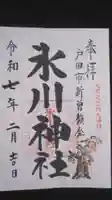 奉拝
戸田市新曽鎮座
氷川神社
令和七年二月吉日